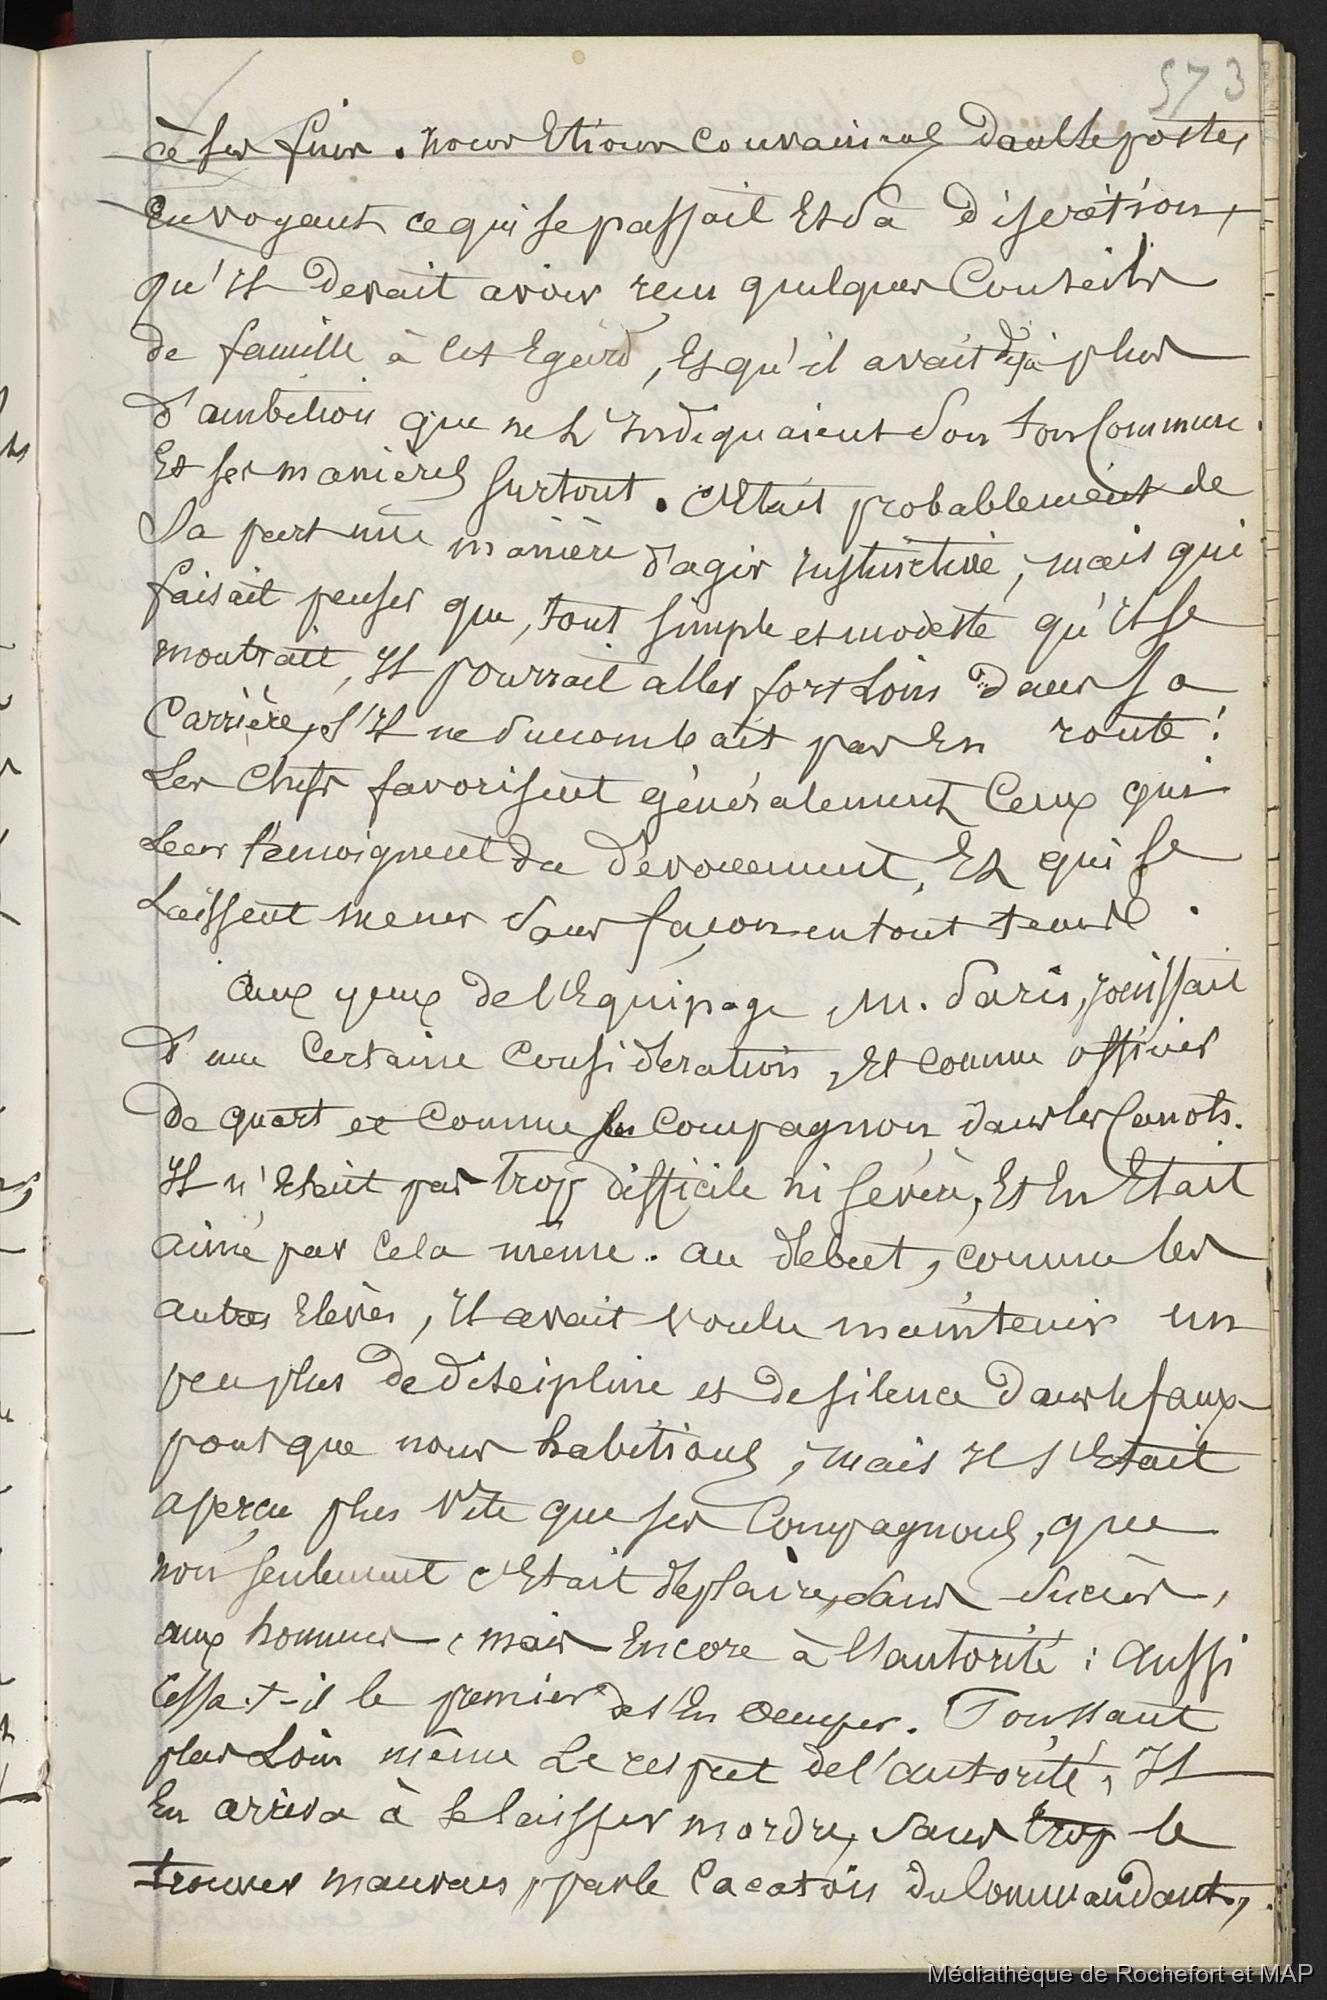 573
à ses fins. nous étions convaincus dans le poste,
En voyant ce qui se passait Et sa discrétion,
qu'Il devait avoir reçu quelques Conseils
de famille à cet Egard, Et qu'il avait déjà plus
d'ambition que ne L'Indiquaient son ton Commun
Et ses manières surtout. c'Etait probablement de
sa part une manière d'agir Instinctive, mais qui
faisait penser que, tout simple et modeste qu'Il se
montrait, Il pourrait aller fort Loin dans sa
Carrière, s'Il ne succombait pas En route!
Les Chefs favorisent généralement Ceux qui
Leur témoignent du dévouement, Et qui se
Laissent mener sans façon en tout tems.
aux yeux de l'Equipage M. Paris, jouissait
d'une Certaine Considération, Et comme officier
de quart et Comme Compagnon dans les Canots.
Il n'était pas trop difficile ni sévère, Et En Etait
aimé par Cela même. au début, comme les
autres Elèves, Il avait voulu maintenir un
peu plus de discipline et de silence dans le faux-
pont que nous habitions, mais Il s'Etait
aperçu plus Vite que ses Compagnons, que
non seulement c'Etait déplaire, sans succès,
aux hommes, mais Encore à l'autorité: Aussi
Cessa-t-il le premier de s'En occuper. Poussant
plus Loin même Le respect de l'autorité, Il
En arriva à se laisser mordre, sans trop le
trouver mauvais, par le Cacatois du Commandant,
Médiathèque de Rochefort et MAP